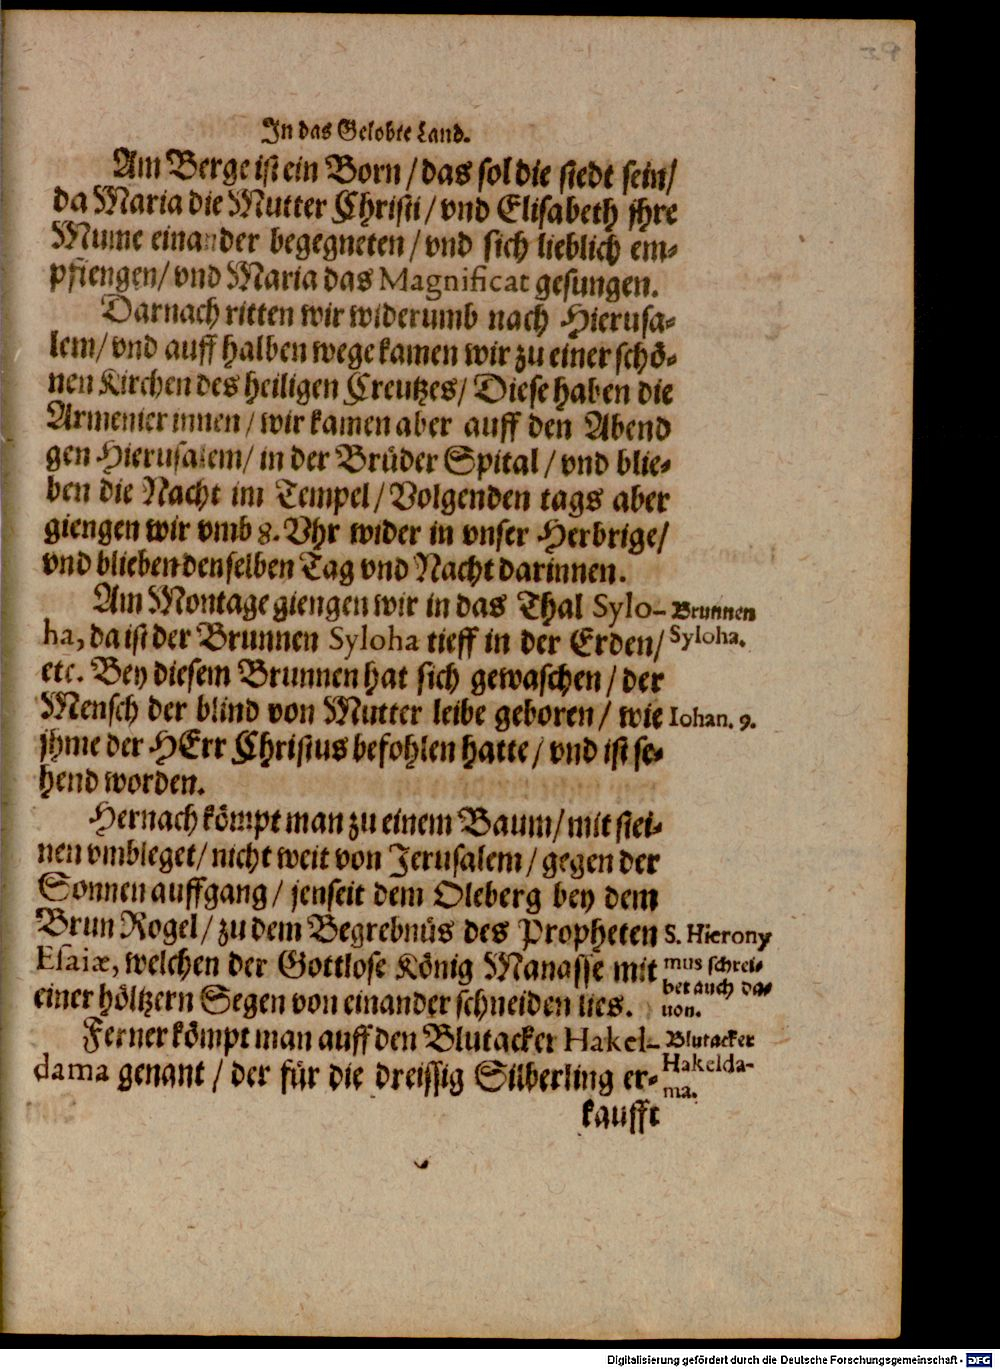 In das Gelobte Land.
Am Berge ist ein Born / das sol die stedt sein/
da Maria die Mutter Christi / vnd Elisabeth jhre
Mume einander begegneten / vnd sich lieblich em-
pfiengen/ vnd Maria das Magnificat gesungen.
Darnach ritten wir widerumb nach Hierusa-
lem/ vnd auff halben wege kamen wir zu einer schö-
nen Kirchen des heiligen Creutzes/ Diese haben die
Armenier innen / wir kamen aber auff den Abend
gen Hierusalem/ in der Brüder Spital / vnd blie-
ben die Nacht im Tempel / Volgenden tags aber
giengen wir vmb 8. Vhr wider in vnser Herbrige/
vnd blieben denselben Tag vnd Nacht darinnen.
Am Montage giengen wir in das Thal Sylo-
ha, da ist der Brunnen Syloha tieff in der Erden/
etc. Bey diesem Brunnen hat sich gewaschen / der
Mensch der blind von Mutter leibe geboren / wie
jhme der HErr Christus befohlen hatte / vnd ist se-
hend worden.
Brunnen
Syloha.
Iohan. 9.
Hernach kömpt man zu einem Baum/ mit stei-
nen vmbleget/ nicht weit von Jerusalem / gegen der
Sonnen auffgang / jenseit dem Oleberg bey dem
Brun Rogel/ zu dem Begrebnüs des Propheten
Esaiæ, welchen der Gottlose König Manasse mit
einer höltzern Segen von einander schneiden lies.
S. Hierony
mus schrei-
bet auch da-
uon.
Ferner kömpt man auff den Blutacker Hakel-
dama genant / der für die dreissig Silberling er-
Blutacker
Hakelda-
ma.
kaufft
Digitalisierung gefördert durch die Deutsche Forschungsgemeinschaft - DFG